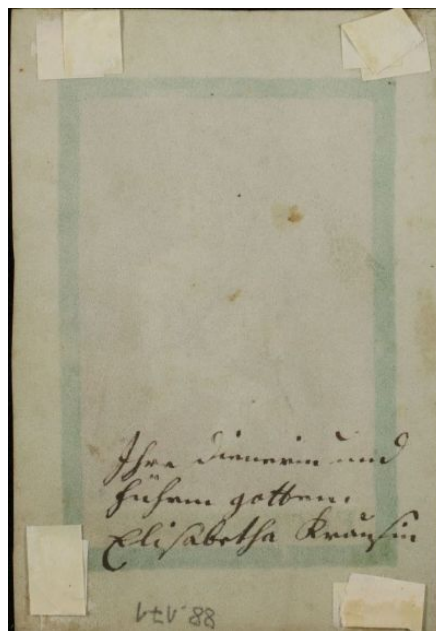 Ihre dienerin und
gotten.
Elisabetha Krausin